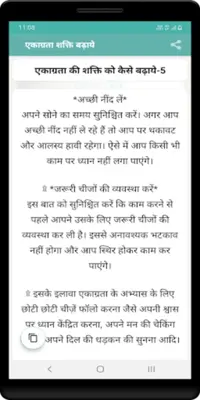 11:08
एकाग्रता शक्ति बढ़ाये
एकाग्रता की शक्ति को कैसे बढ़ाये-5
*अच्छी नींद लें*
अपने सोने का समय सुनिश्चित करें। अगर आप
अच्छी नींद नहीं ले रहे हैं तो आप पर थकावट
और आलस्य हावी रहेगा। ऐसे में आप किसी भी
काम पर ध्यान नहीं लगा पाएंगे।
*जरूरी चीजों की व्यवस्था करें*
इस बात को सुनिश्चित करें कि काम करने से
पहले आपने उसके लिए जरूरी चीजों की
व्यवस्था कर ली है। इससे अनावश्यक भटकाव
नहीं होगा और आप स्थिर होकर काम कर
पाएंगे।
इसके इलावा एकाग्रता के अभ्यास के लिए
छोटी छोटी चीज़ें फॉलो करना जैसे अपनी श्वास
पर ध्यान केंद्रित करना, अपने मन की चेकिंग
अपने दिल की धड़कन की सुनना आदि।